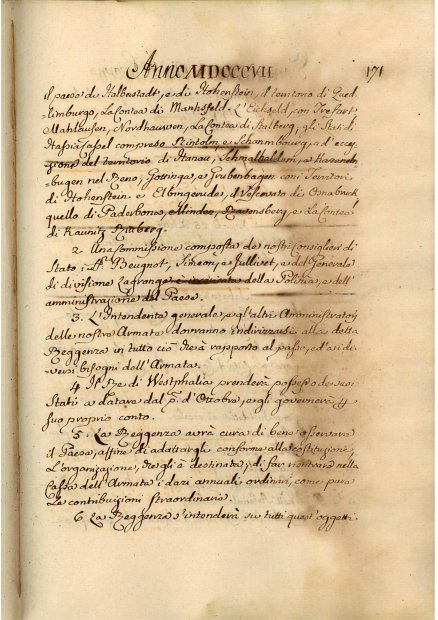 Anno MDCCCVII
171
il paese di Halberstadt, e di Hohenstein, il territorio di Qued
=linburgo, la Contea di Mansfeld. L'Eichsfeld, con Trefurt
Mahlausen, Nordhausen, la Contea di Stalberg, gli Stati di
Hassia Cassel compreso Rintolm, e Schaunbourg, ad'ecce=
zione del territorio di Hanau, Schmalkaldem, e
bugen nel Reno, Gottinga, e Grubenhagen coni Territori
di Hohenstein e Elbingerude, il Vescovato di Osnabruck
quello di Paderbona, Minden, Ravensberg, e la Contea
di Kaunitz Rittberg.
2. Una Commissione composta de nostri consiglieri di
Stato i Sri. Beugnot, Simeon, e Jullivet, e del Generale
di divisione Lagrange è incaricata della Polizia, e dell'
amministrazione del Paese.
3. L'Intendente generale, e gl'altri Amministratori
delle nostre Armate dovranno indirizzarsi alla detta
Reggenza in tutto ciò che à rapporto al paese, ed ai di=
=versi bisogni dell'Armata.
4 Il Re di Westphalia prenderà possesso de suoi
Stati a datare dal p.º d'Ottobre, e gli governerà p
suo proprio conto.
5. La Reggenza avrà cura di bene osservare
il Paese, affine di adattargli conforme alla costituzione,
L'organizazione, che gli è destinata, di far rientrare nella
Cassa dell'Armata i dazi annuali ordinari, come pure
le contribuzioni straordinarie.
6. La Reggenza s'intenderà su tutti quest'oggetti